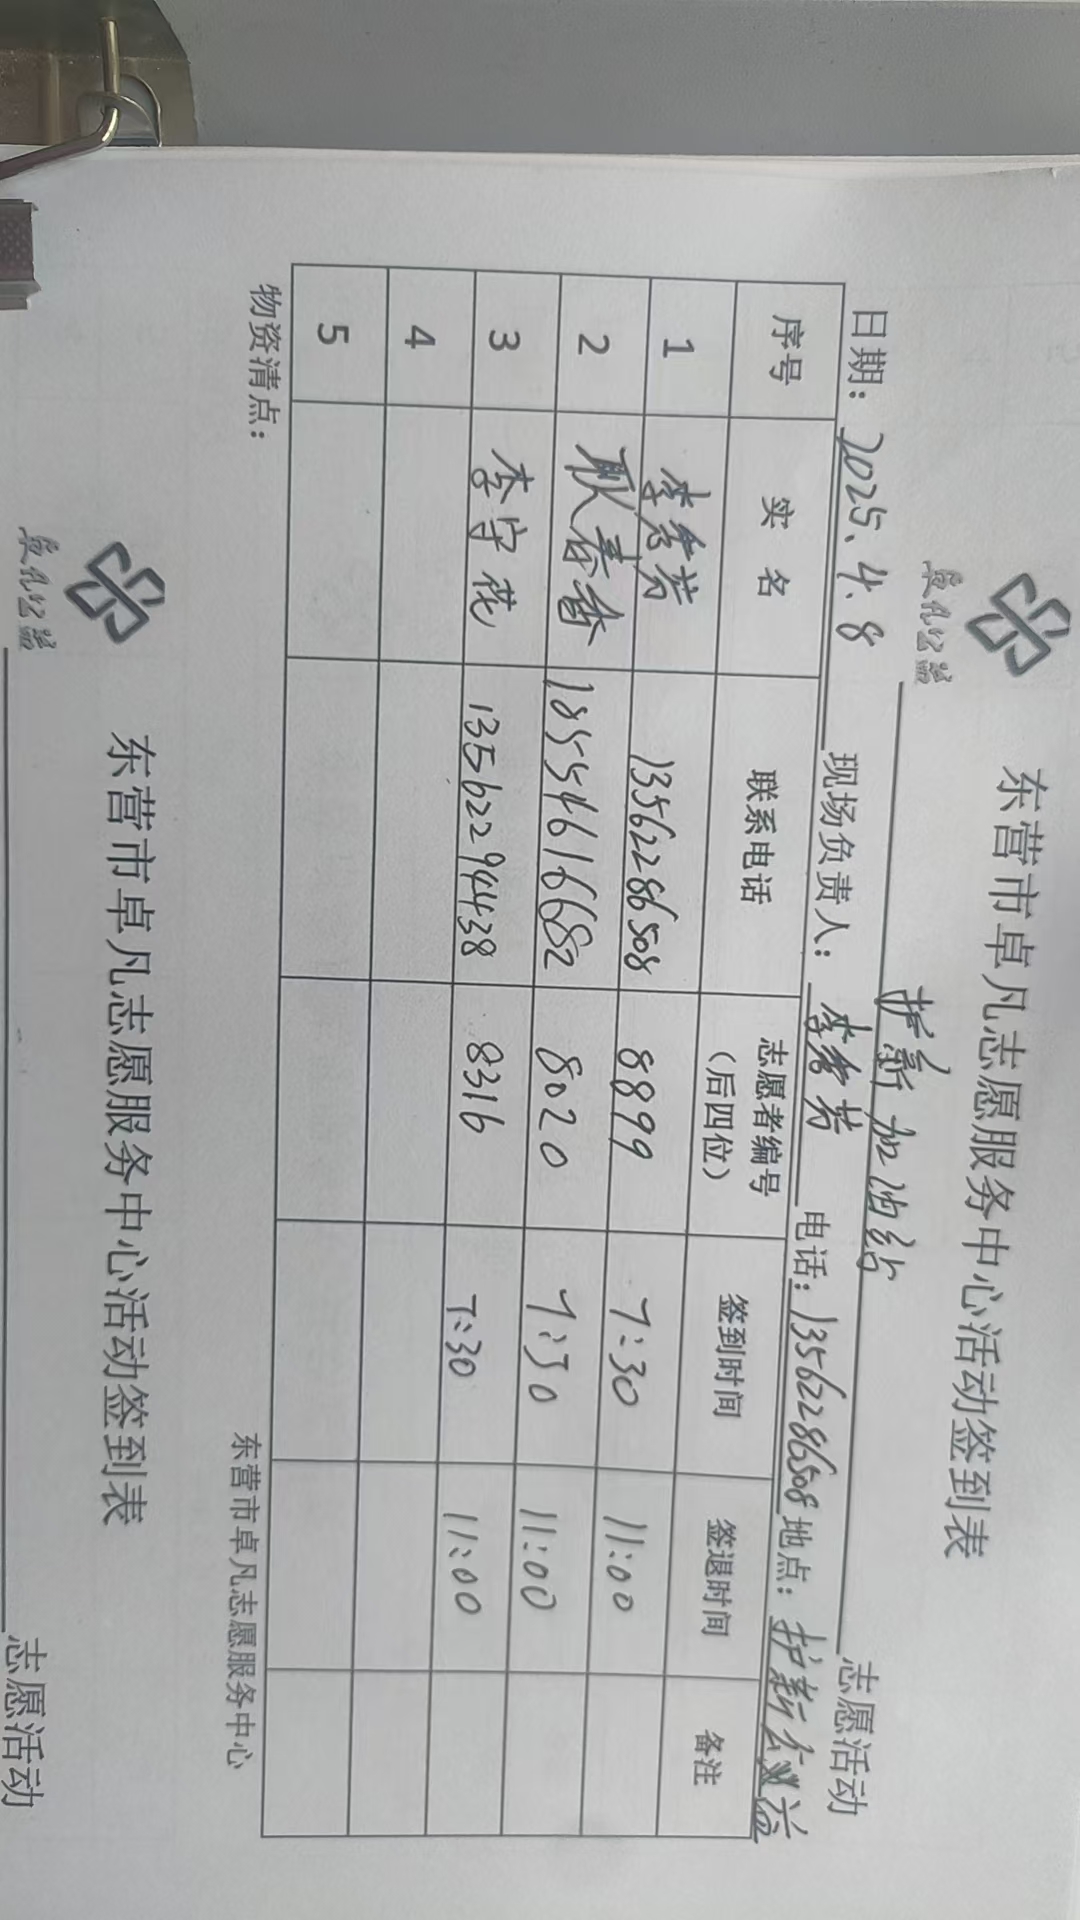 卓凡公益
东营市卓凡志愿服务中心活动签到表
护新加油站 志愿活动
日期：2025.4.8 现场负责人：李秀芳 电话：13562286508 地点：护新公益
序号 实名 联系电话 志愿者编号（后四位） 签到时间 签退时间 备注
1 李秀芳 13562286508 8899 7:30 11:00
2 耿春香 18554616682 8020 7:30 11:00
3 李守花 13562294438 8316 7:30 11:00
4
5
物资清点：
东营市卓凡志愿服务中心
卓凡公益
东营市卓凡志愿服务中心活动签到表
志愿活动